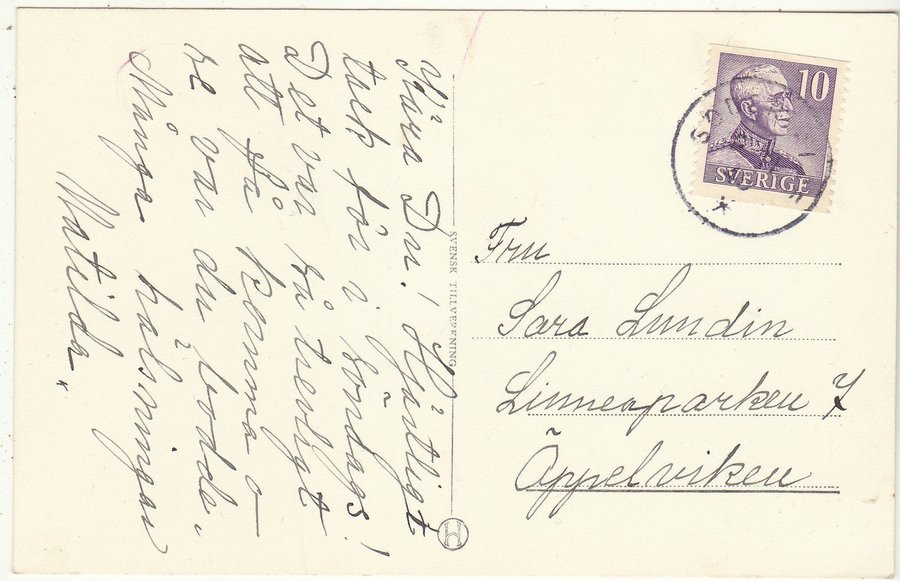 Kära Du! Hjärtligt
tack för i söndags!
Det var så trevligt
att få komma o
se var du bodde.
Många hälsningar
Matilda.
SVENSK TILLVERKNING
10
SVERIGE
Fru
Sara Lundin
Linneaparken 7
Äppelviken